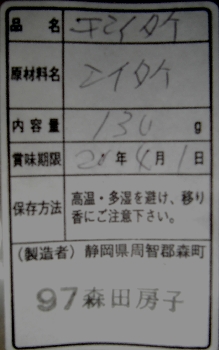 品名 干シイタケ
原材料名 シイタケ
内容量 130g
賞味期限 20年4月1日
保存方法 高温・多湿を避け、移り
香にご注意下さい。
(製造者) 静岡県周智郡森町
97 森田房子